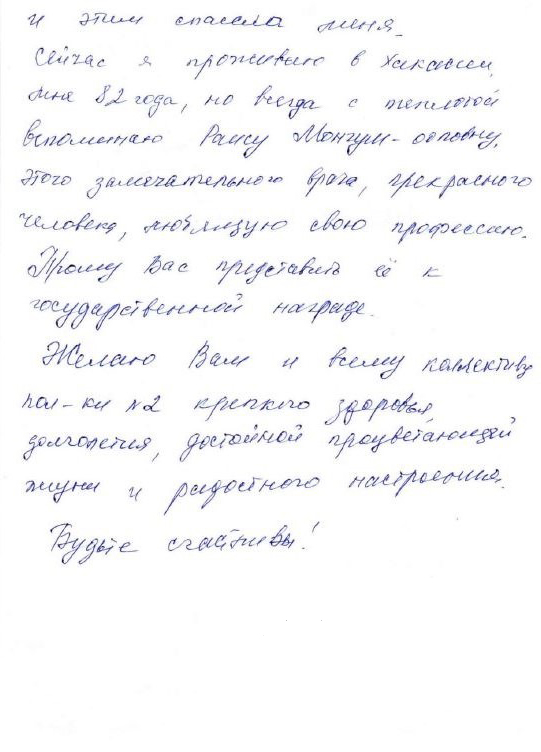 и этим спасла меня.
Сейчас я проживаю в Хакасии,
мне 82 года, но всегда с теплотой
вспоминаю Раису Монгуш-ооловну,
этого замечательного врача, прекрасного
человека, любящую свою профессию.
Прошу Вас представить её к
государственной награде.
Желаю Вам и всему коллективу
пол-ки №2 крепкого здоровья,
долголетия, достойной процветающей
жизни и радостного настроения.
Будьте счастливы!